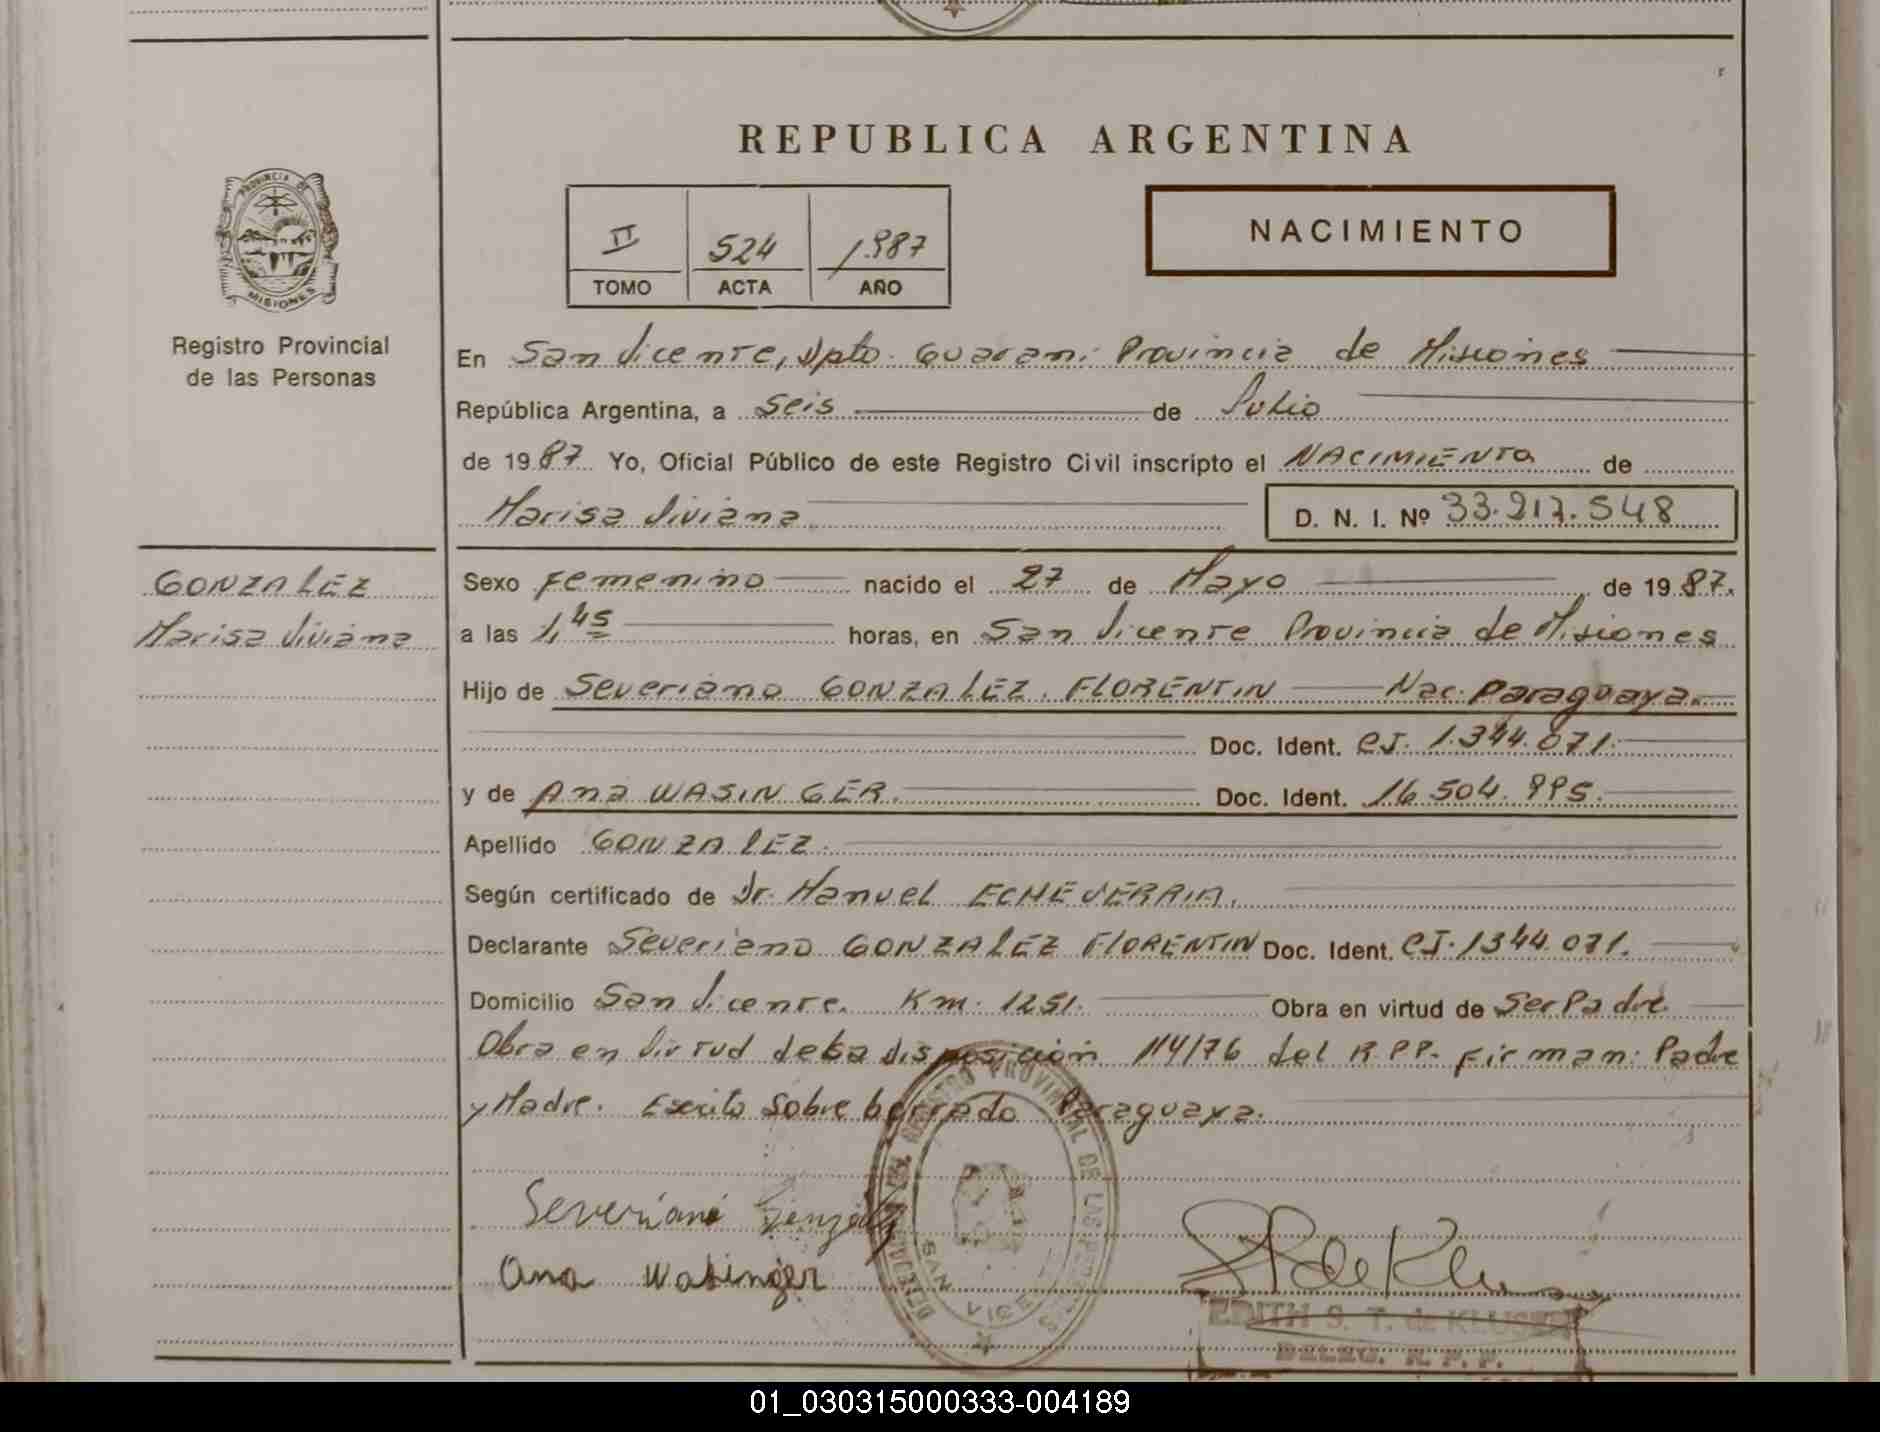 REPUBLICA ARGENTINA
PROVINCIA DE
MISIONES
Registro Provincial
de las Personas
II 524 1987
TOMO ACTA AÑO
NACIMIENTO
En San Vicente, Dpto. Guarani Provincia de Misiones
República Argentina, a seis de Julio
de 1987 Yo, Oficial Público de este Registro Civil inscripto el NACIMIENTO de
Marisa Viviana D. N. I. Nº 33.217.548
GONZALEZ
Marisa Viviana
Sexo femenino nacido el 27 de Mayo de 1987.
a las 1,45 horas, en San Vicente Provincia de Misiones
Hijo de Severiano GONZALEZ FLORENTIN Nac. Paraguaya.
Doc. Ident. CI. 1.344.071.
y de Ana WASINGER. Doc. Ident. 16.504.995.
Apellido GONZALEZ.
Según certificado de Dr. Manuel ECHEVERRIA.
Declarante Severiano GONZALEZ FLORENTIN Doc. Ident. CI. 1344.071.
Domicilio San Vicente. Km. 1251. Obra en virtud de Ser Padre
Obra en Virtud de la disposición 114/76 del R.P.P. Firman: Padre
y Madre. Escrito sobre borrado Paraguaya.
Severiano Gonzalez
Ana Wasinger
REGISTRO PROVINCIAL DE LAS
SAN VICE
EDITH S. T. de KLUSER
DELEG. R. P. P.
01_030315000333-004189